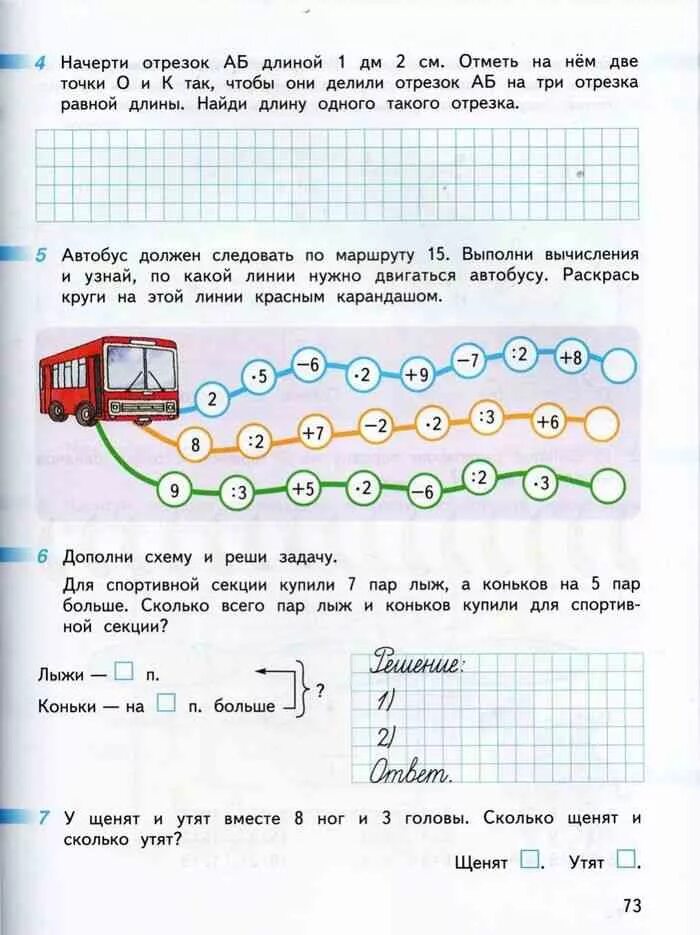 4 Начерти отрезок АБ длиной 1 дм 2 см. Отметь на нём две
точки О и К так, чтобы они делили отрезок АБ на три отрезка
равной длины. Найди длину одного такого отрезка.
5 Автобус должен следовать по маршруту 15. Выполни вычисления
и узнай, по какой линии нужно двигаться автобусу. Раскрась
круги на этой линии красным карандашом.
2 ·5 −6 ·2 +9 −7 :2 +8
8 :2 +7 −2 ·2 :3 +6
9 :3 +5 ·2 −6 :2 ·3
6 Дополни схему и реши задачу.
Для спортивной секции купили 7 пар лыж, а коньков на 5 пар
больше. Сколько всего пар лыж и коньков купили для спортив-
ной секции?
Лыжи — п.
Коньки — на п. больше
?
Решение:
1)
2)
Ответ.
7 У щенят и утят вместе 8 ног и 3 головы. Сколько щенят и
сколько утят?
Щенят . Утят .
73